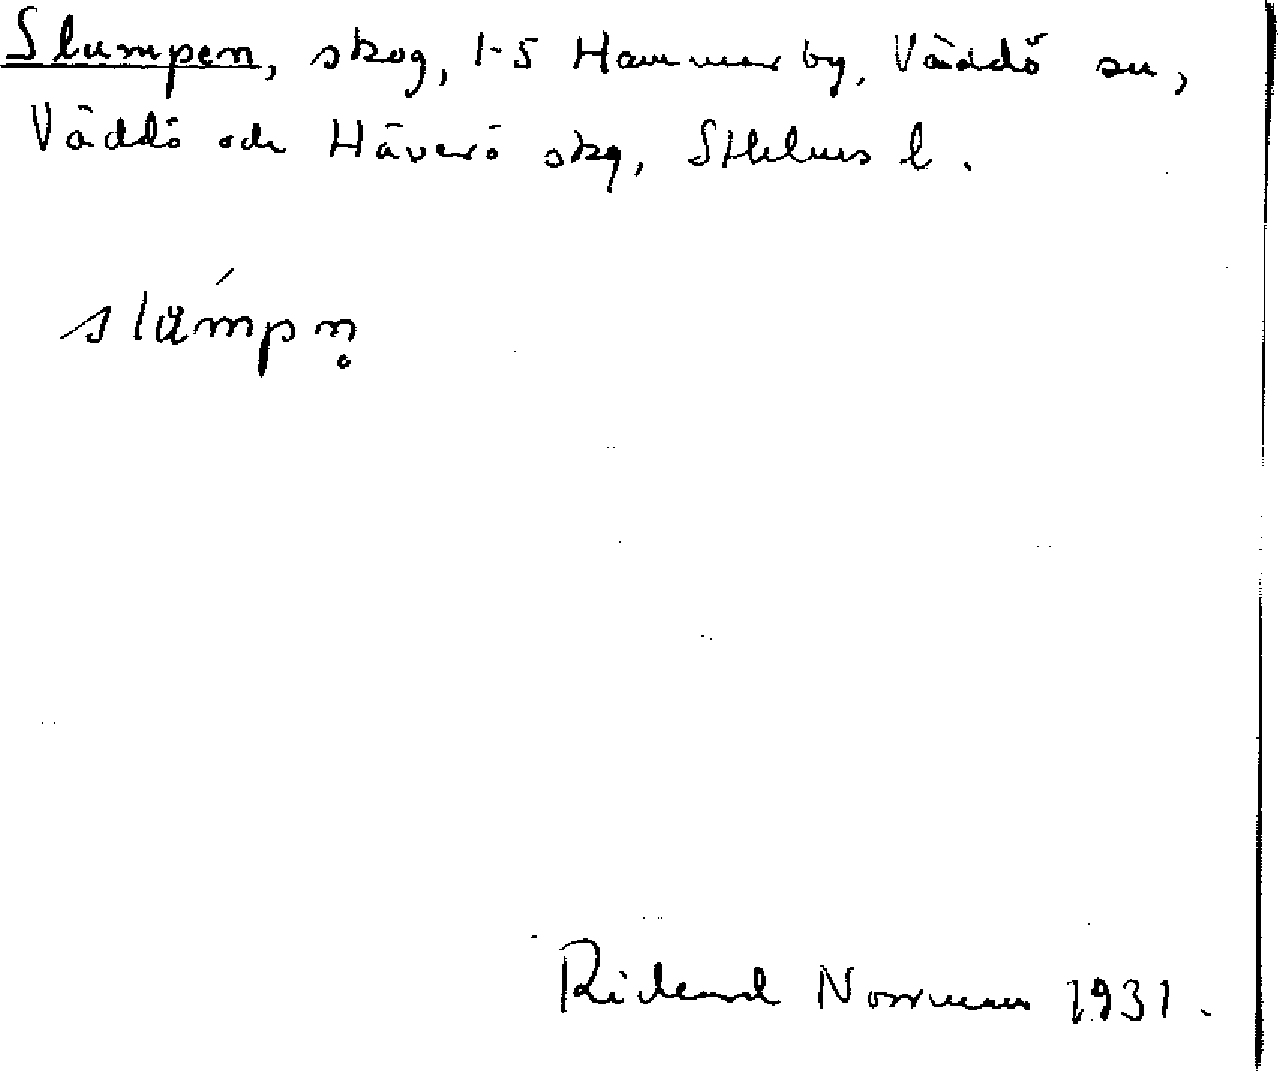 Slumpen, skog, 1-5 Hammarby, Väddö sn,
Väddö och Häverö skg, Sthlms l.
slumpn̥
Rickard Norrman 1931.